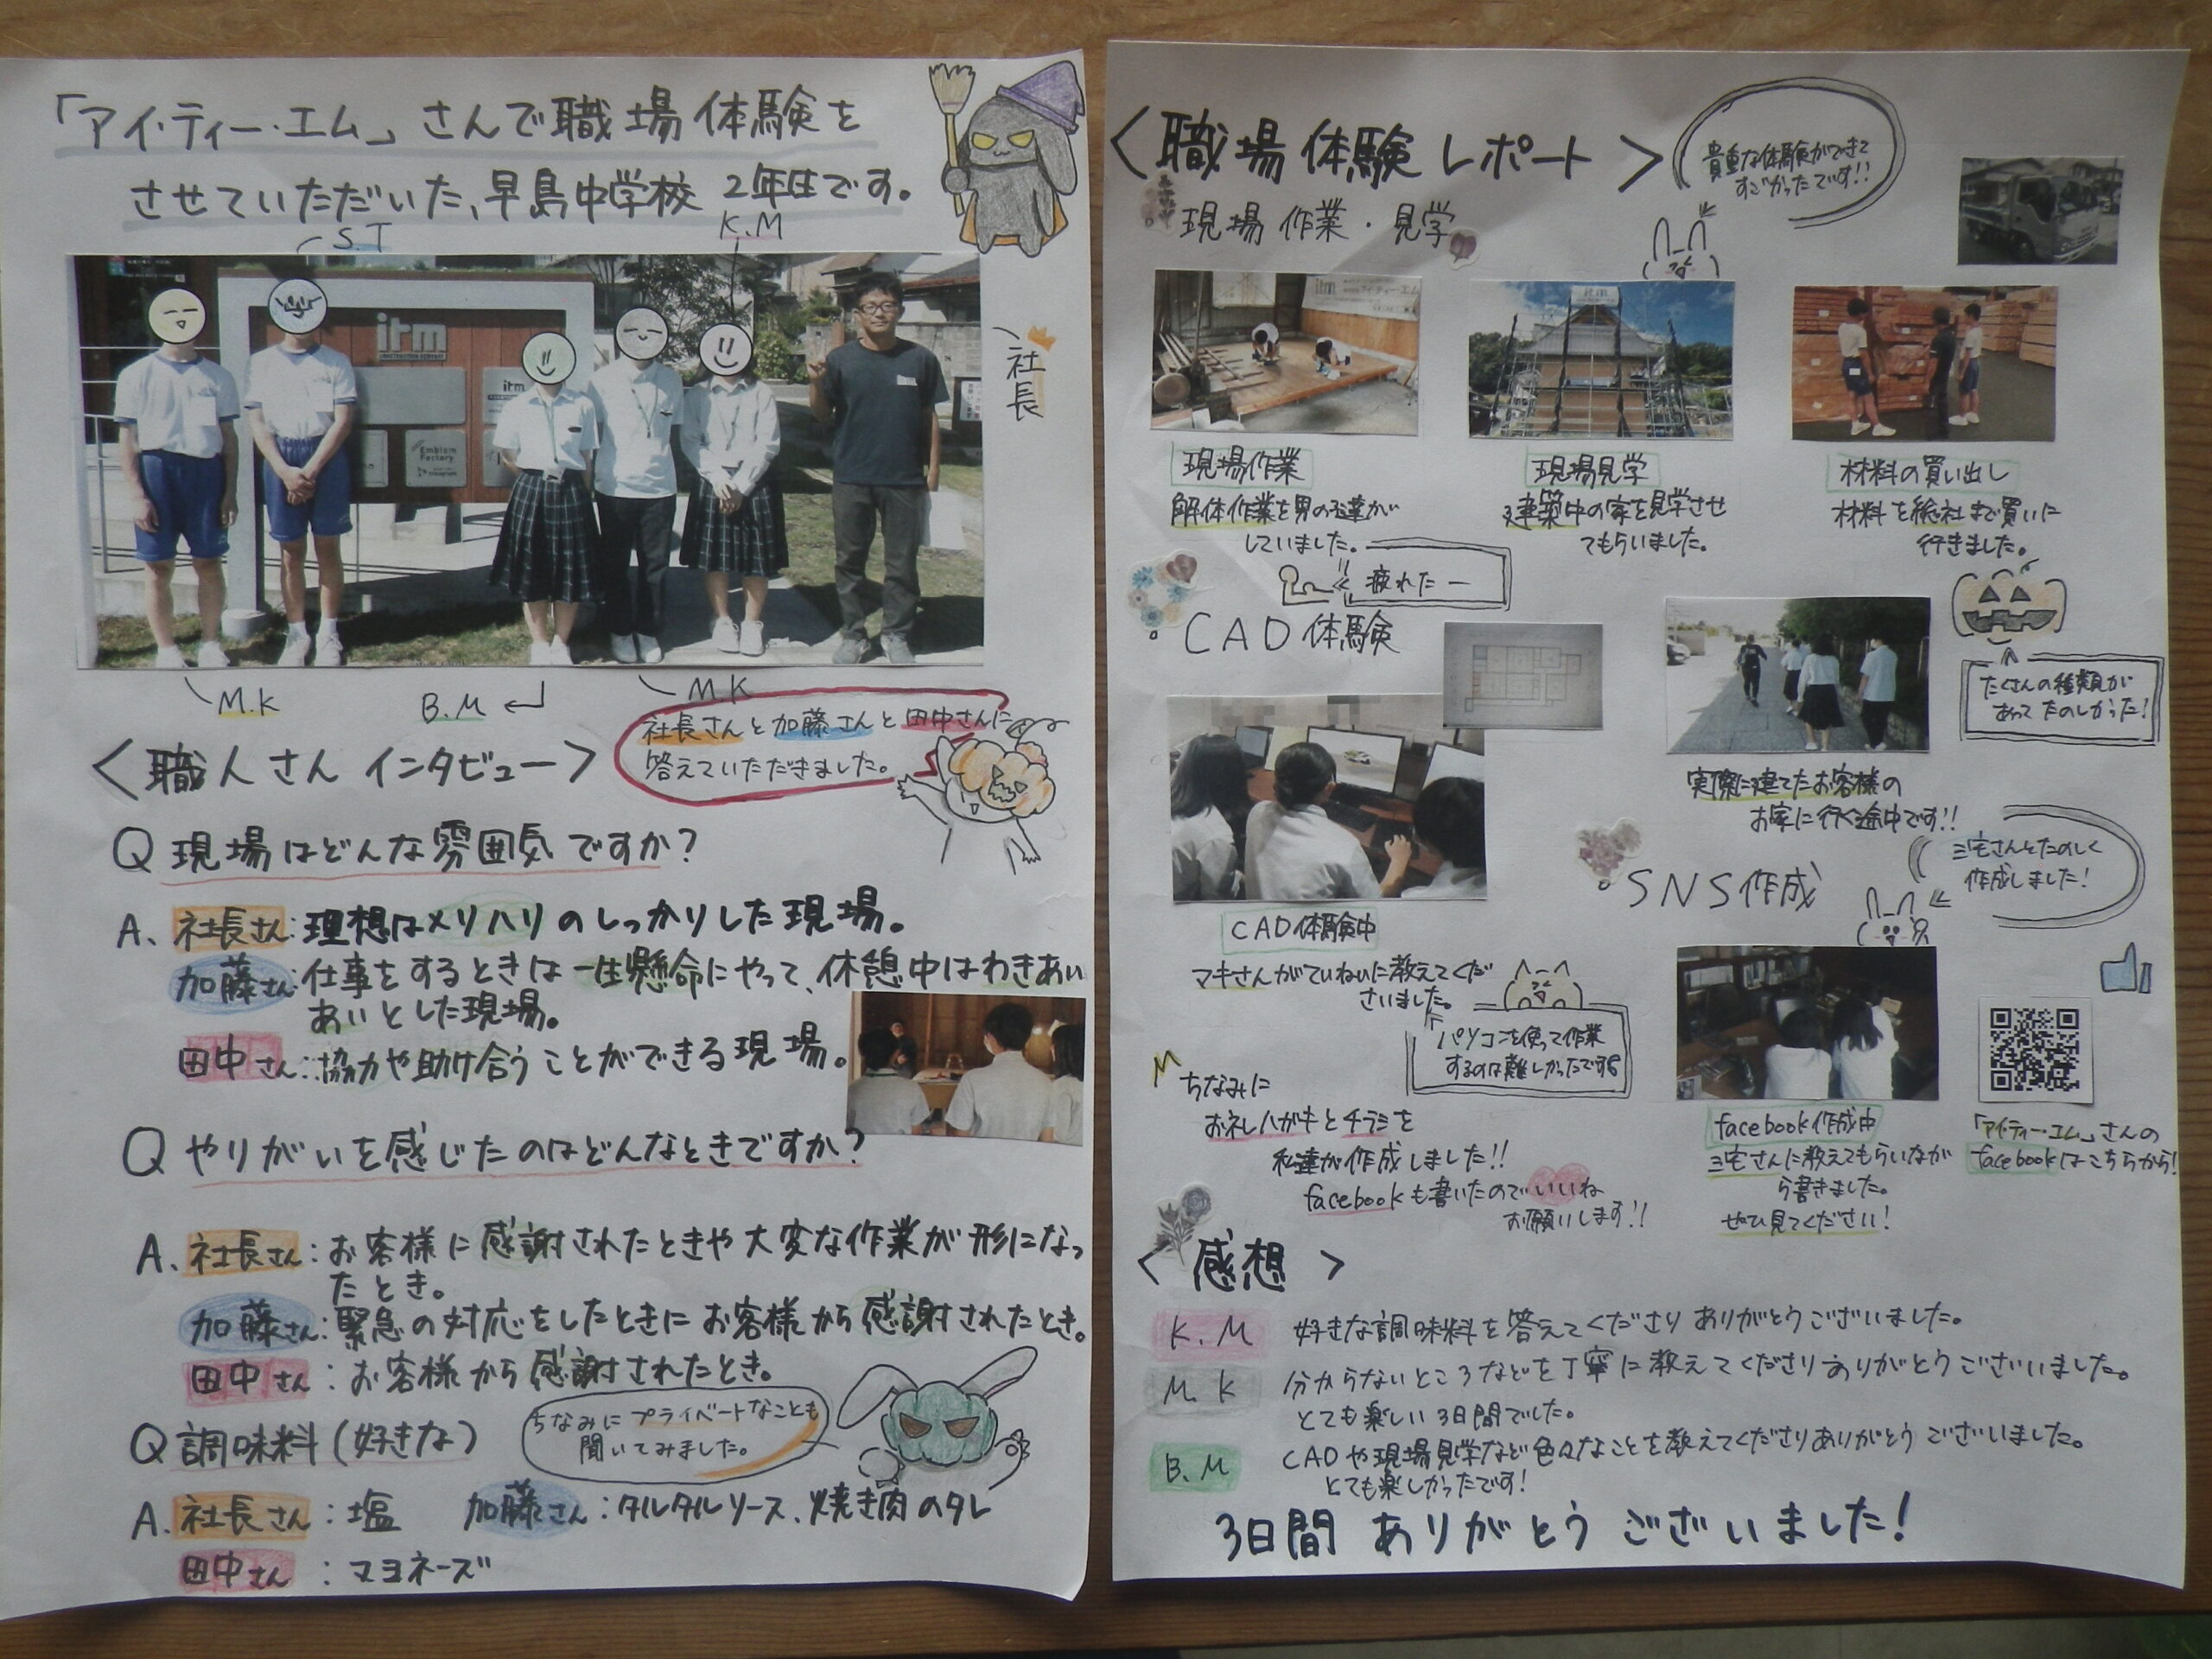 「アイ・ティー・エム」さんで職場体験を
させていただいた、早島中学校 2年生です。
S.T
K.M
itm
itm
Emblem
Factory
社長
M.K
B.M
M.K
<職人さん インタビュー>
社長さんと加藤さんと田中さんに
答えていただきました。
Q 現場はどんな雰囲気ですか?
A、社長さん:理想はメリハリのしっかりした現場。
加藤さん:仕事をするときは一生懸命にやって、休憩中はわきあい
あいとした現場。
田中さん:協力や助け合うことができる現場。
Q やりがいを感じたのはどんなときですか?
A、社長さん:お客様に感謝されたときや大変な作業が形になっ
たとき。
加藤さん:緊急の対応をしたときにお客様から感謝されたとき。
田中さん:お客様から感謝されたとき。
Q 調味料(好きな)
ちなみにプライベートなことも
聞いてみました。
A、社長さん:塩 加藤さん:タルタルソース、焼き肉のタレ
田中さん:マヨネーズ
<職場体験レポート>
貴重な体験ができて
すごかったです!!
現場作業・見学
itm
アイティー・エム
itm
現場作業
解体作業を男の子達が
していました。
疲れたー
現場見学
建築中の家を見学させ
てもらいました。
材料の買い出し
材料を総社まで買いに
行きました。
CAD体験
たくさんの種類が
あってたのしかった!
実際に建てたお客様の
お家に行く途中です!!
CAD体験中
マキさんがていねいに教えてくだ
さいました。
パソコンを使って作業
するのは難しかったです
SNS作成
三宅さんとたのしく
作成しました!
ちなみに
お礼ハガキとチラシを
私達が作成しました!!
facebookも書いたのでいいね
お願いします!!
facebook作成中
三宅さんに教えてもらいなが
ら書きました。
ぜひ見てください!
「アイ・ティー・エム」さんの
facebookはこちらから!
<感想>
K.M 好きな調味料を答えてくださりありがとうございました。
M.K 分からないところなどを丁寧に教えてくださりありがとうございました。
とても楽しい3日間でした。
B.M CADや現場見学など色々なことを教えてくださりありがとうございました。
とても楽しかったです!
3日間 ありがとう ございました!